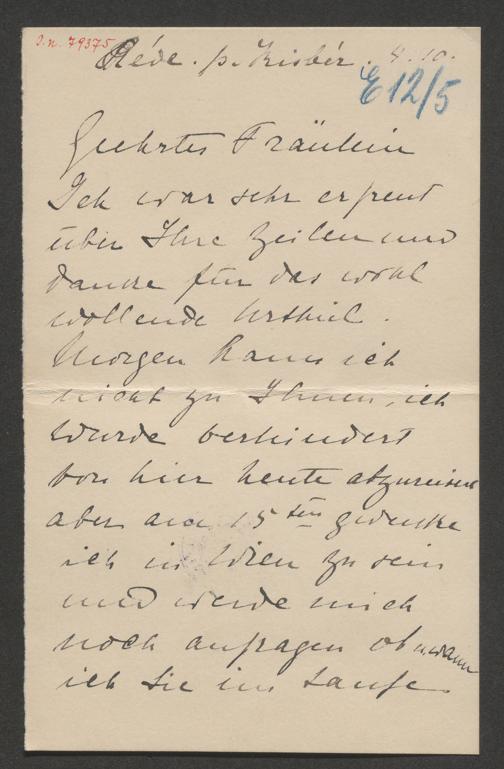 I.N. 79375
Réde. p. Kisbér. 4.10.
E 12/5
Geehrtes Fräulein
Ich war sehr erfreut
über Ihre Zeilen und
danke für das wohl
wollende Urtheil.
Morgen kann ich
nicht zu Ihnen, ich
wurde verhindert
von hier heute abzureisen
aber am 15ten gedenke
ich in Wien zu sein
und werde mich
noch anfragen ob u. wann
ich Sie im Laufe